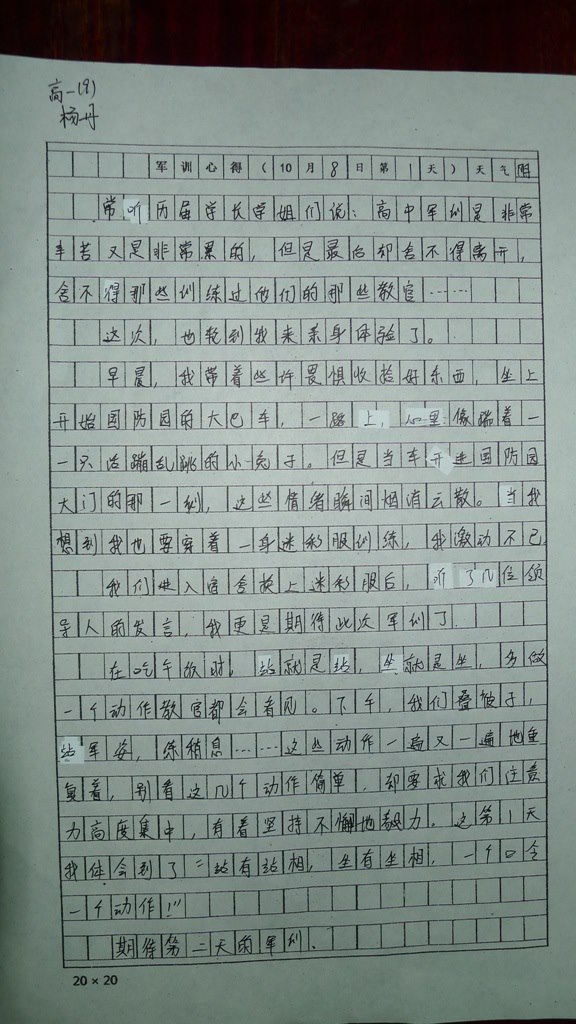 高一(9)
杨丹
军训心得(10月8日第1天)天气阴
常听历届学长学姐们说：高中军训是非常
辛苦又是非常累的，但是最后却舍不得离开，
舍不得那些训练过他们的那些教官……
这次，也轮到我来亲身体验了。
早晨，我带着些许畏惧收拾好东西，坐上
开始国防园的大巴车，一路上，心里像踹着一
一只活蹦乱跳的小兔子。但是当车开进国防园
大门的那一刻，这些情绪瞬间烟消云散。当我
想到我也要穿着一身迷彩服训练，我激动不已
我们进入宿舍换上迷彩服后，听了几位领
导人的发言，我更是期待此次军训了.
在吃午饭时，站就是站，坐就是坐，多做
一个动作教官都会看见。下午，我们叠被子，
站军姿，练稍息……这些动作一遍又一遍地重
复着，别看这几个动作简单，却要求我们注意
力高度集中，有着坚持不懈地毅力。这第1天
我体会到了“站有站相，坐有坐相，一个口令
一个动作!”
期待第二天的军训.
20×20